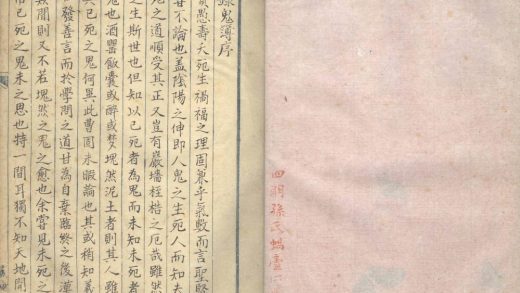 四明孫氏蝸廬
錄鬼簿序
愚壽夭死生禍福之理固兼乎氣數而言聖賢
不論也盖陰陽之伸即人鬼之生死人而知夫
死之道順受其正又豈有巖墻桎梏之厄哉雖然
之生斯世也但知以已死者為鬼而未知未死者
鬼也酒罌飯囊或醉或夢塊然泥土者則其人雖
與已死之鬼何異此曹固未暇論也其或稍知義
發善言而於學問之道甘為自棄臨終之後漠
無聞則又不若塊然之鬼之愈也余嘗見未死之
已死之鬼未之思也特一間耳獨不知天地開